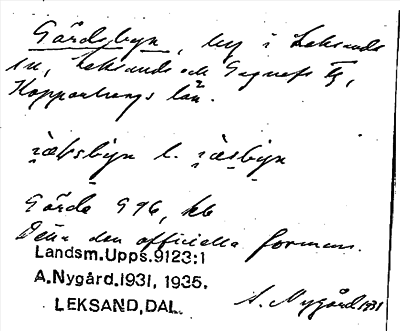 Gärdsbyn, by i Leksands
sn, Leksands och Gagnefs tg,
Kopparbergs län.
i̯æk̯sbyn l. i̯æsbyn
Gärde 976, kb
Detta den officiella formen.
Landsm.Upps.9123:1
A.Nygård.1931, 1935.
LEKSAND,DAL.
A. Nygård 1931